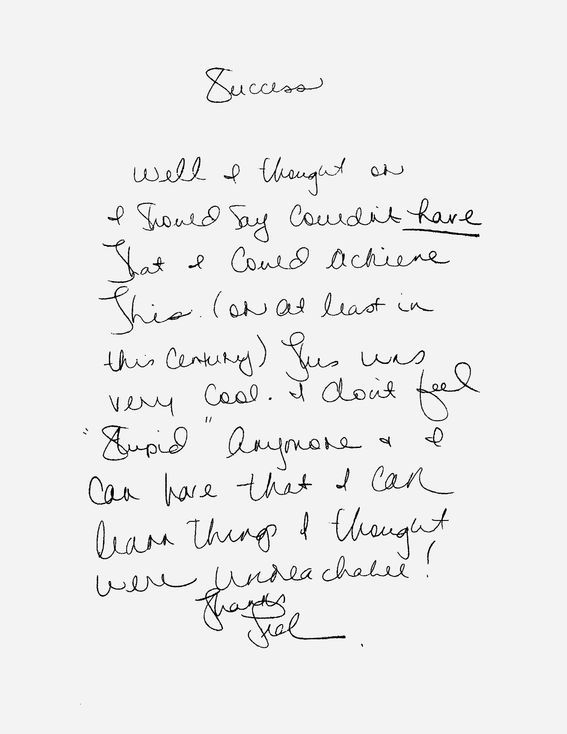 Success
Well I thought or
I Should Say Couldn't have
That I Could achieve
This. (or at least in
this Century) This was
very Cool. I don't feel
"Stupid" Anymore & I
Can have that I can
learn Things I thought
were unreachable!
Thanks